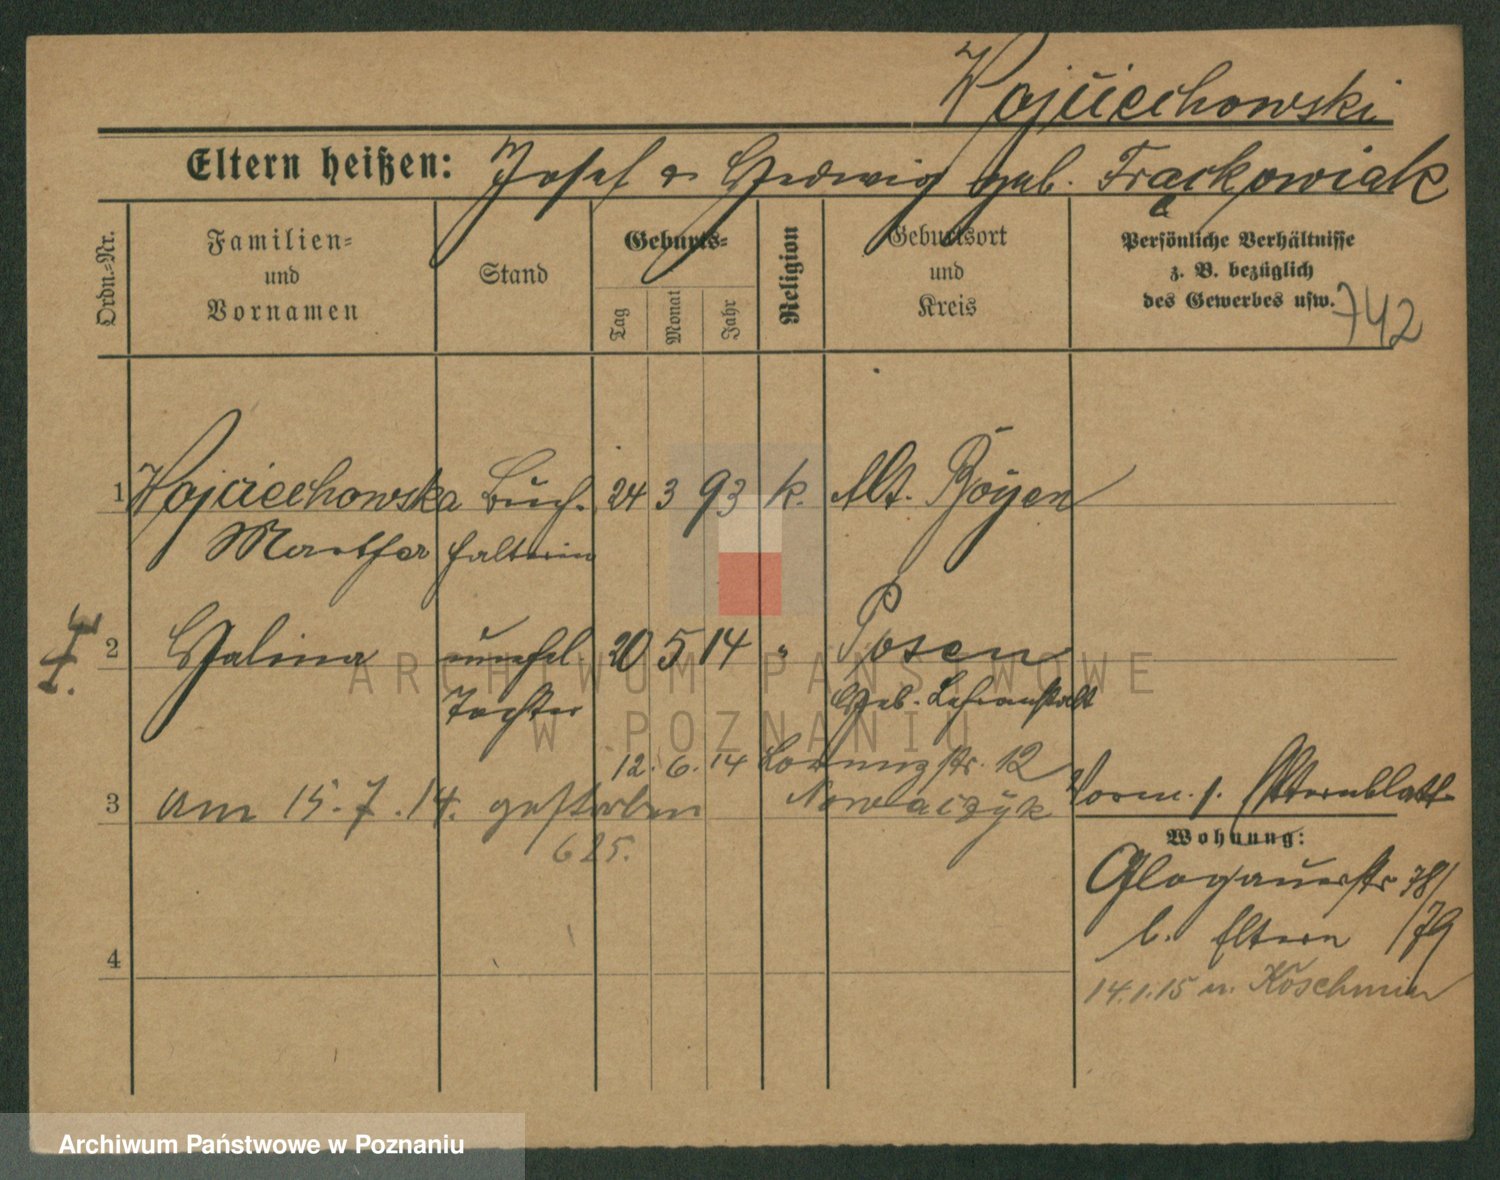 Wojciechowski
Eltern heißen: Josef u Hedwig geb. Frąckowiak
Ordn.-Nr.
Familien-
und
Vornamen
Stand
Geburts-
Tag
Monat
Jahr
Religion
Geburtsort
und
Kreis
Persönliche Verhältnisse
z. B. bezüglich
des Gewerbes usw.
742
1 Wojciechowska Buch- 24 3 93 k. Alt. Boyen
Martha halterin
2 Halina unehel 20 5 14 " Posen
Tochter Geb. Lehranstalt
12. 6. 14 str. 12
Nowaczyk
3 am 15.7.14. gestorben
625.
Vorm. s. Elternblatt
Wohnung:
Glogauerstr 78/
/79
b. Eltern
14.1.15 n. Koschmin
4
ARCHIWUM PAŃSTWOWE
W POZNANIU
Archiwum Państwowe w Poznaniu